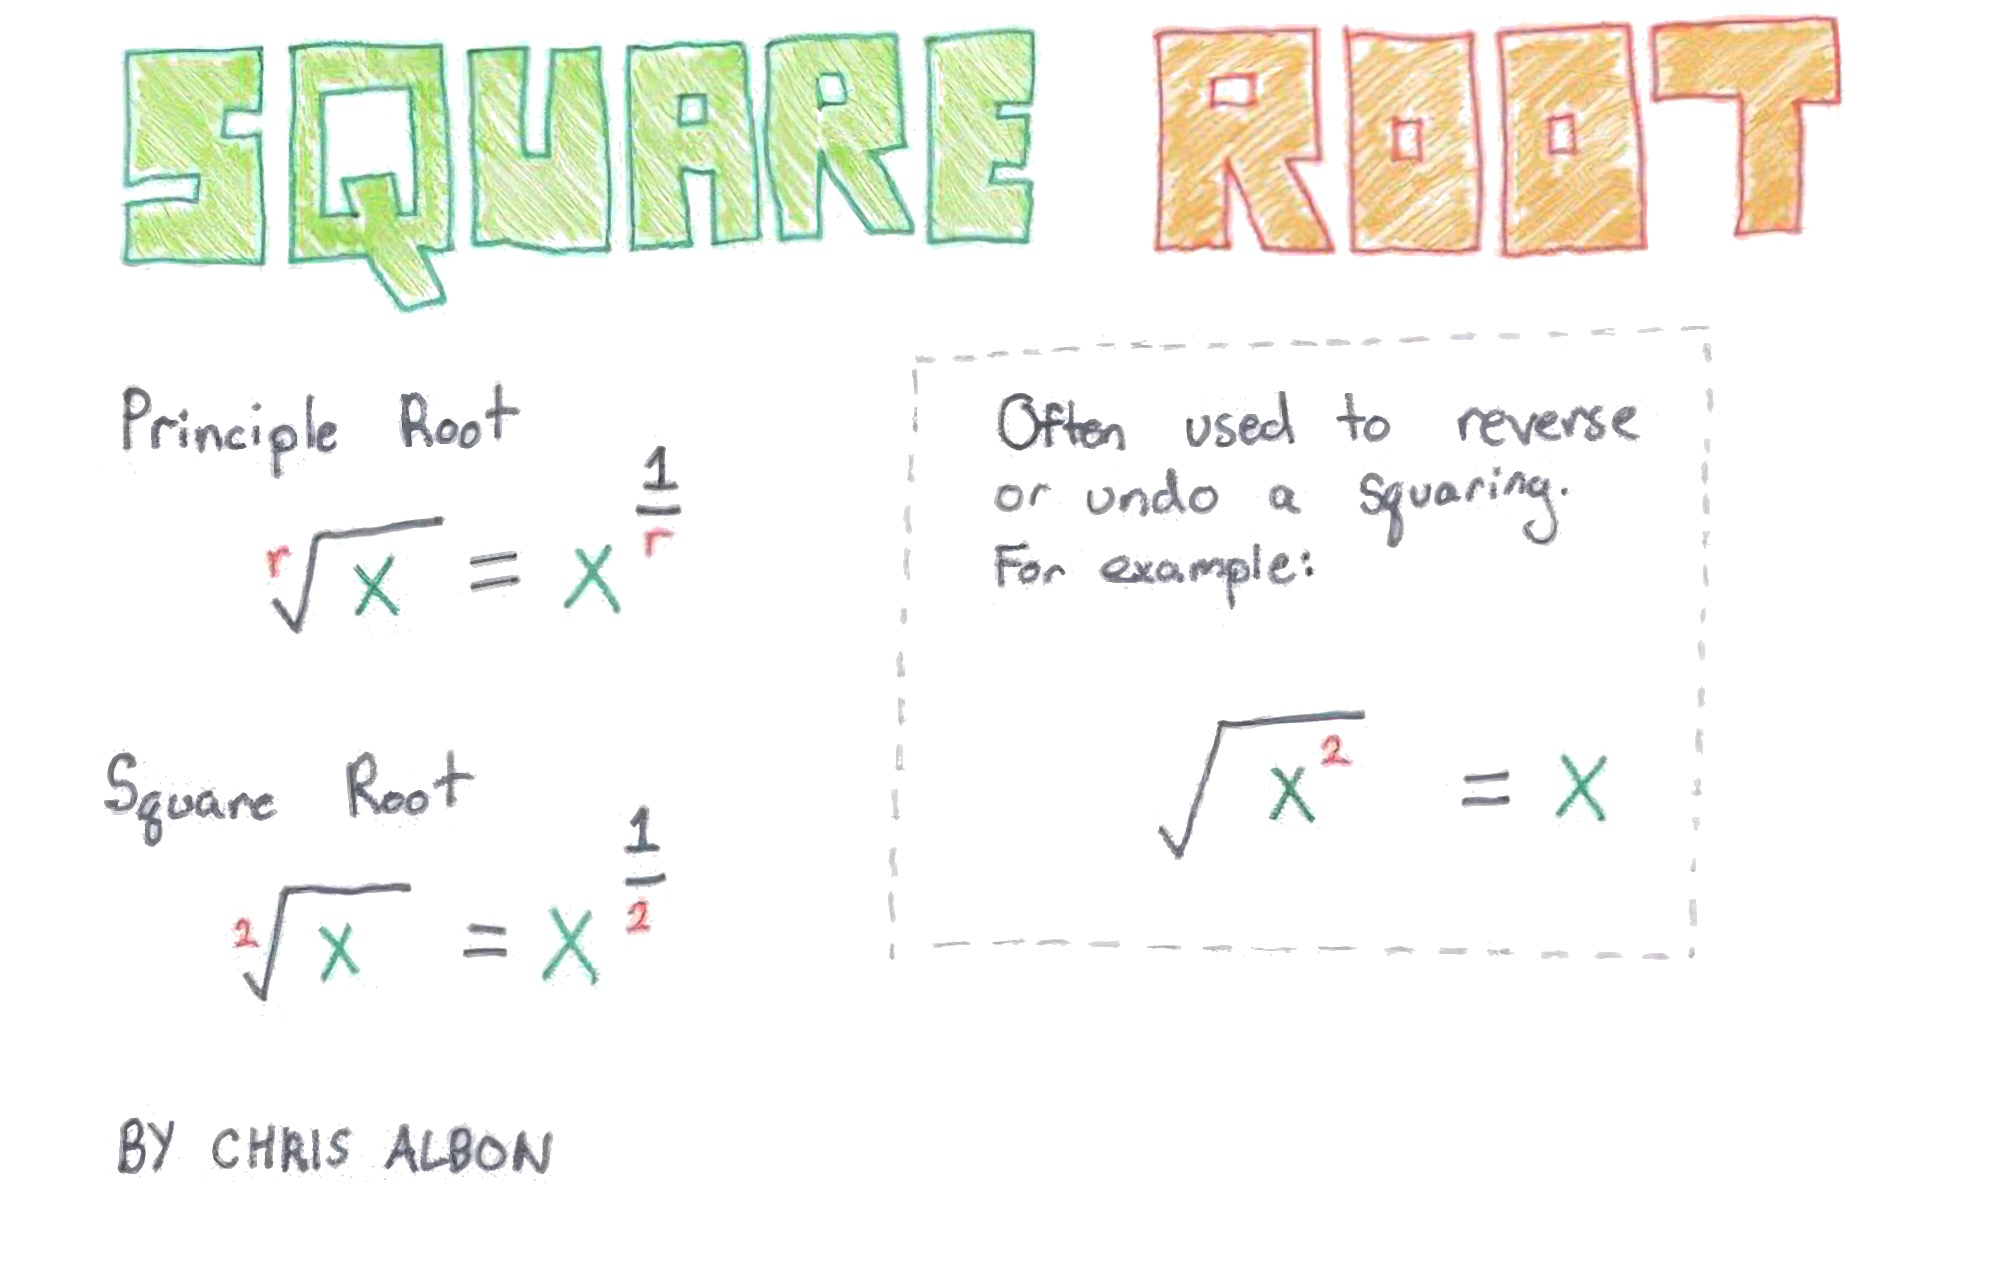 SQUARE ROOT
Principle Root
ʳ√x = x^(1/r)
Square Root
²√x = x^(1/2)
Often used to reverse
or undo a squaring.
For example:
√x² = x
BY CHRIS ALBON